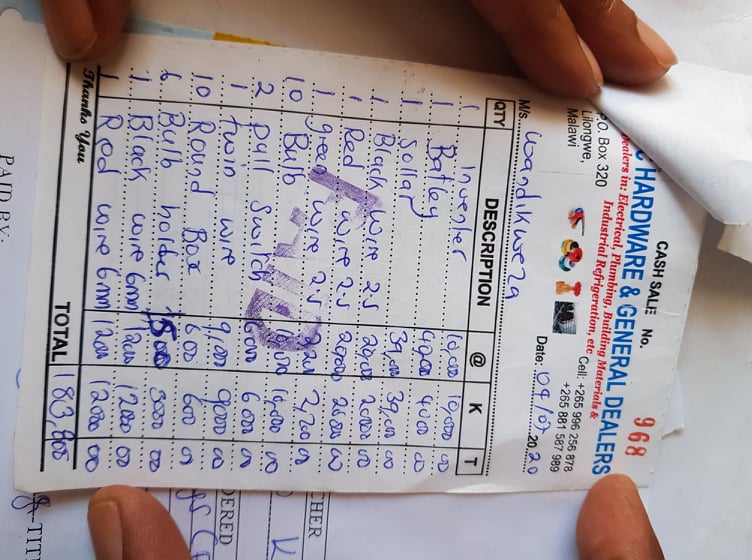 CASH SALE No. 968
HARDWARE & GENERAL DEALERS
Dealers in: Electrical, Plumbing, Building Materials &
Industrial Refrigeration, etc
P.O. Box 320
Lilongwe,
Malawi
Cell: +265 996 256 878
+265 881 587 989
M/s. wandikweza Date: 04/07 2020
QTY DESCRIPTION @ K T
1 Inventer 10,000 10,000 00
1 Batley 40,000 40,000 00
1 Sollay 39,000 39,000 00
1 Black wire 2.5 20,000 20,000 00
1 Red wire 2.5 20,000 20,000 00
1 green wire 2.5 2,200 2,200 00
10 Bulb 00
2 pull switch 6,000 6000 00
1 twin wire 9,000 9000 00
10 Round Box 600 600 00
6 Bulb holder 500 3000 00
1 Black wire 6mm 12000 12000 00
1 Red wire 6mm 12000 12000 00
Thanks You TOTAL 183,800 00
PAID
PAID BY:
CHER
DERED
TIT